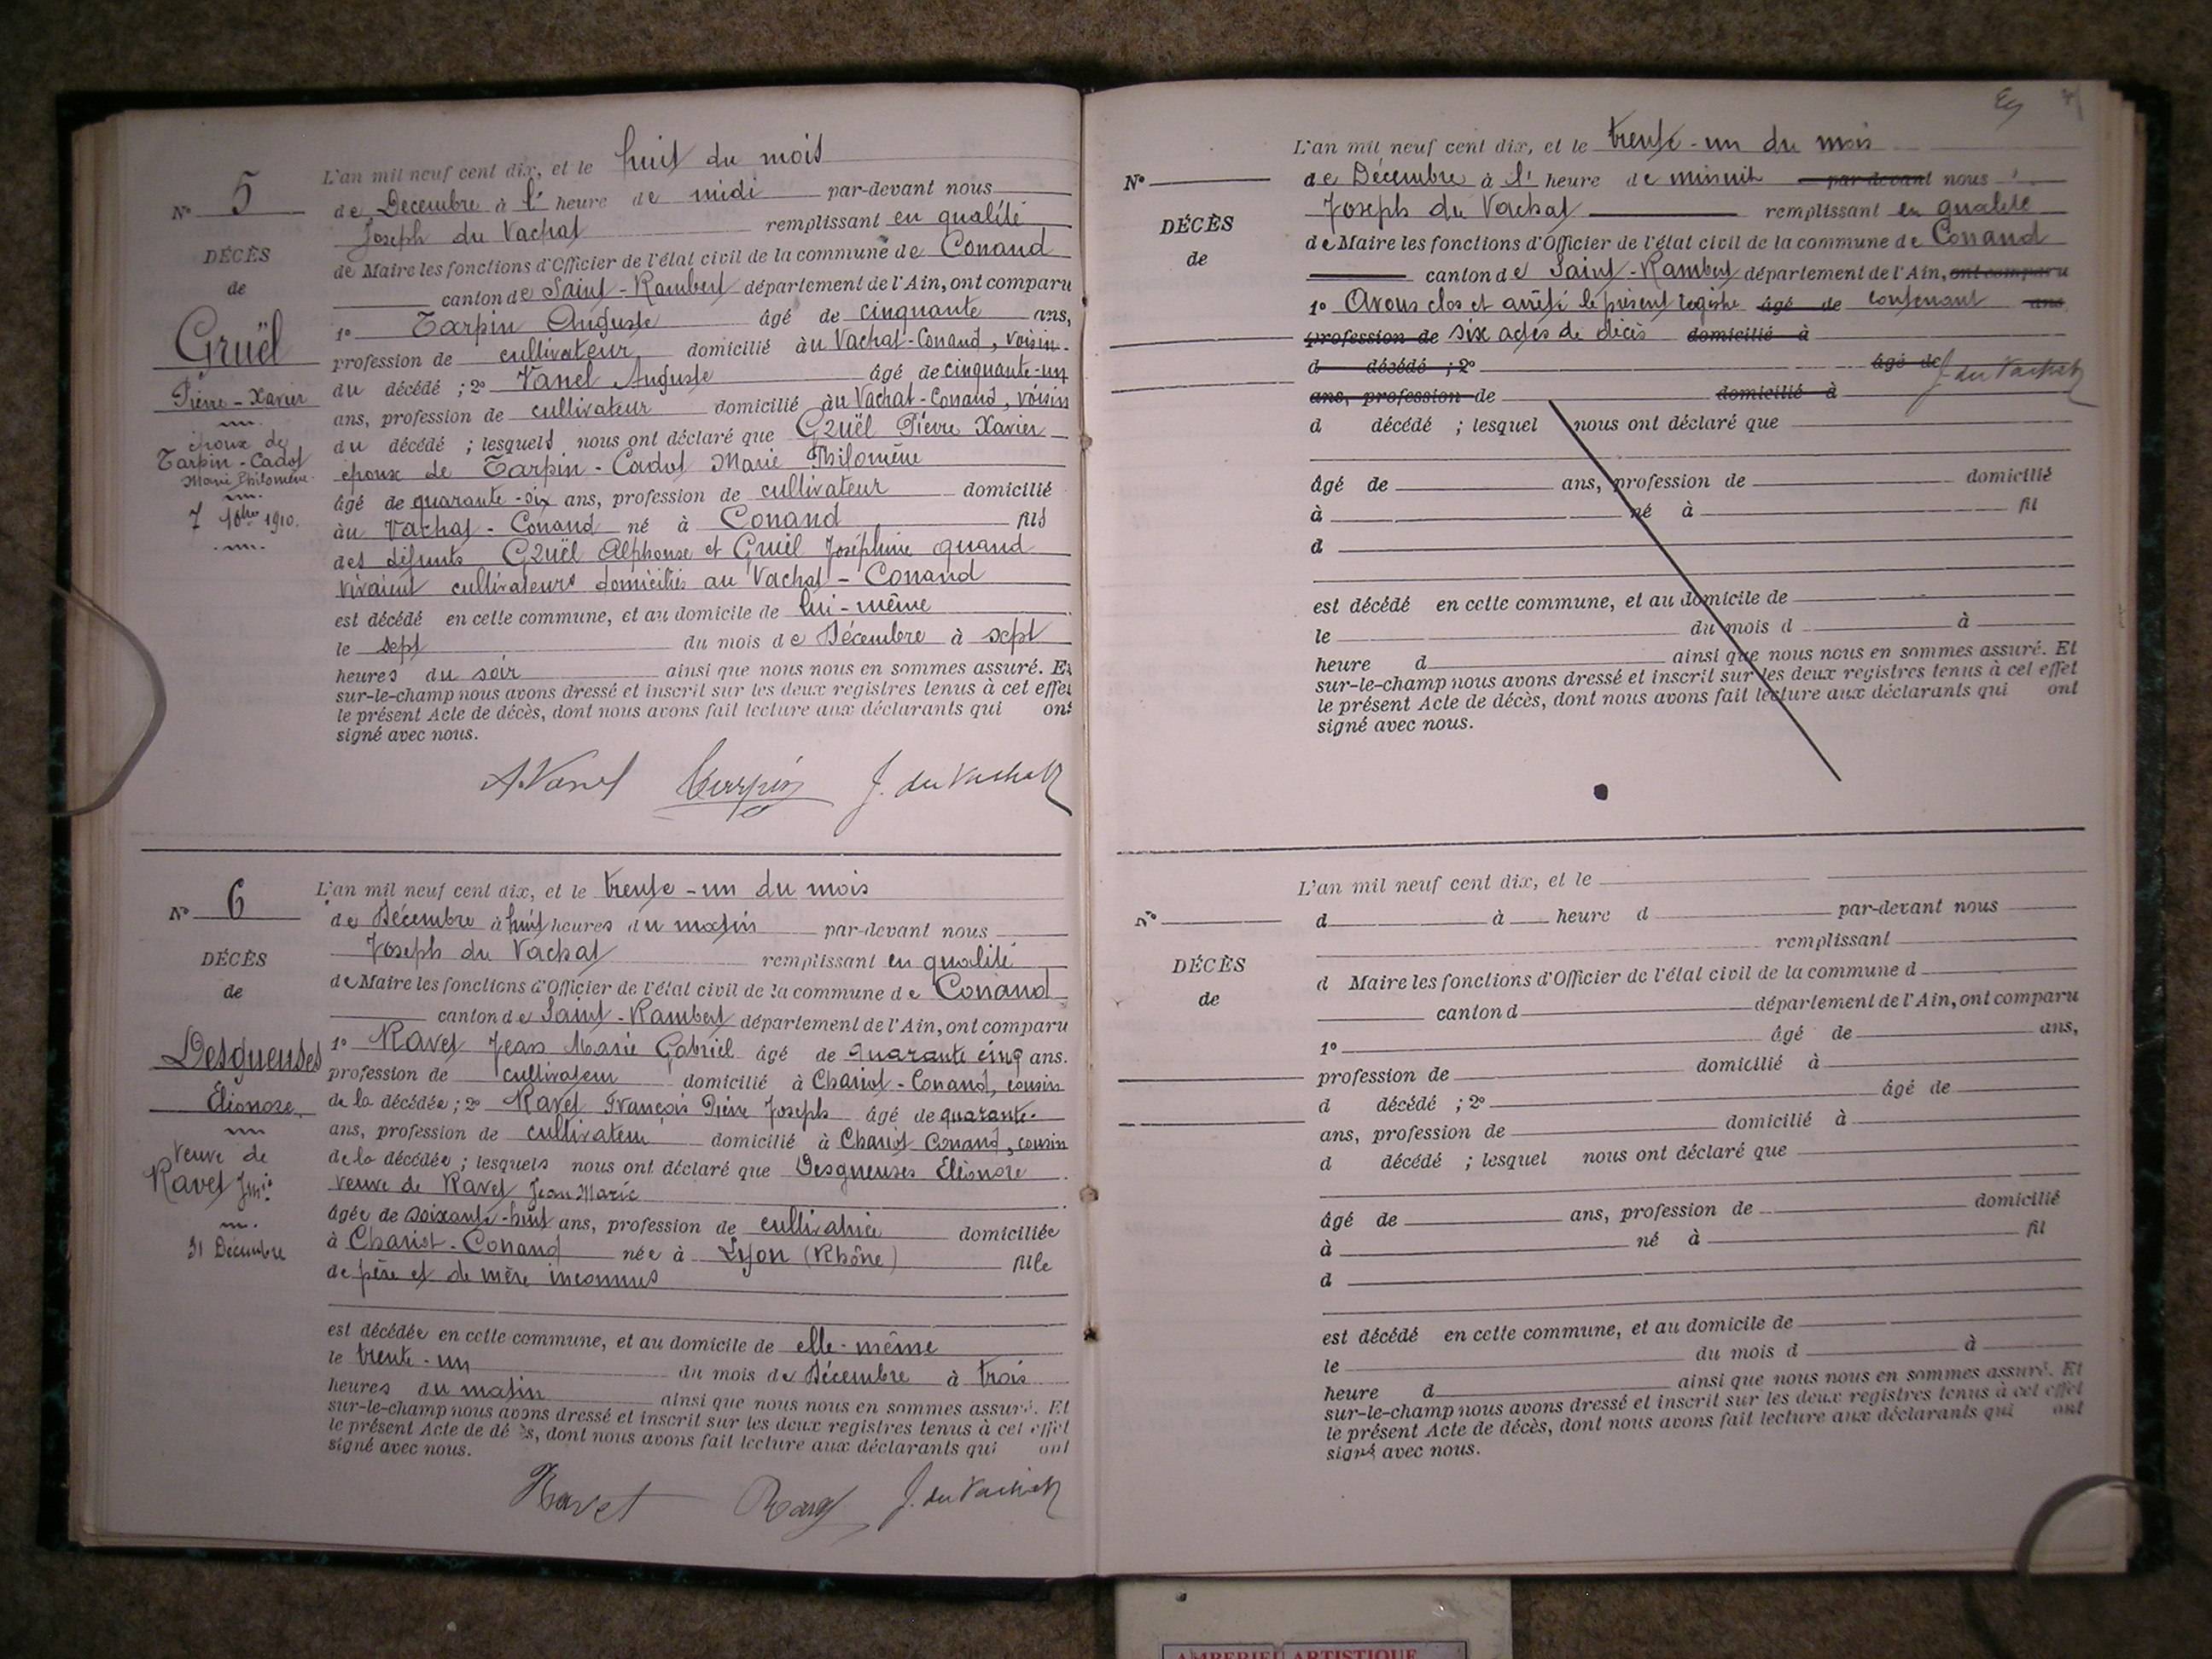 N° 5
DÉCÈS
de
Gruël
Pierre-Xavier
époux de
Tarpin-Cadot
Marie Philomène
7 10bre 1910.
L'an mil neuf cent dix, et le huit du mois
de Decembre à l' heure de midi par-devant nous
Joseph du Vachat remplissant en qualité
de Maire les fonctions d'Officier de l'état civil de la commune de Conand
canton de Saint-Rambert département de l'Ain, ont comparu
1° Tarpin Auguste âgé de cinquante ans,
profession de cultivateur domicilié au Vachat-Conand, voisin
du décédé ; 2° Vanel Auguste âgé de cinquante-un
ans, profession de cultivateur domicilié au Vachat-Conand, voisin
du décédé ; lesquels nous ont déclaré que Gruël Pierre Xavier
époux de Tarpin-Cadot Marie Philomène
âgé de quarante-six ans, profession de cultivateur domicilié
au Vachat-Conand né à Conand fils
des défunts Gruël Alphonse et Gruel Joséphine quand
vivaient cultivateurs domiciliés au Vachat-Conand
est décédé en cette commune, et au domicile de lui-même
le sept du mois de Décembre à sept
heures du soir ainsi que nous nous en sommes assuré. Et
sur-le-champ nous avons dressé et inscrit sur les deux registres tenus à cet effet
le présent Acte de décès, dont nous avons fait lecture aux déclarants qui ont
signé avec nous.
A. Vanel Tarpin J. du Vachat
N° 6
DÉCÈS
de
Desgueuses
Éléonore
veuve de
Ravet J M ie
31 Décembre
L'an mil neuf cent dix, et le trente-un du mois
de Décembre à huit heures du matin par-devant nous
Joseph du Vachat remplissant en qualité
de Maire les fonctions d'Officier de l'état civil de la commune de Conand
canton de Saint-Rambert département de l'Ain, ont comparu
1° Ravet Jean Marie Gabriel âgé de quarante cinq ans.
profession de cultivateur domicilié à Chariot-Conand, cousin
de la décédée ; 2° Ravet François Pierre Joseph âgé de quarante
ans, profession de cultivateur domicilié à Chariot Conand, cousin
de la décédée ; lesquels nous ont déclaré que Desgueuses Eléonore
veuve de Ravet Jean Marie
âgée de soixante-huit ans, profession de cultivatrice domiciliée
à Chariot-Conand née à Lyon (Rhône) fille
de père et de mère inconnus
est décédée en cette commune, et au domicile de elle-même
le trente-un du mois de Décembre à trois
heures du matin ainsi que nous nous en sommes assuré. Et
sur-le-champ nous avons dressé et inscrit sur les deux registres tenus à cet effet
le présent Acte de décès, dont nous avons fait lecture aux déclarants qui ont
signé avec nous.
Ravet Ravet J. du Vachat
N°
DÉCÈS
de
L'an mil neuf cent dix, et le trente-un du mois
de Décembre à l' heure de minuit par-devant nous
Joseph du Vachat remplissant en qualité
de Maire les fonctions d'Officier de l'état civil de la commune de Conand
canton de Saint-Rambert département de l'Ain, ont comparu
1° Avons clos et arrêté le présent registre âgé de contenant ans
profession de six actes de décès domicilié à
d décédé ; 2° âgé de J. du Vachat
ans, profession de domicilié à
d décédé ; lesquel nous ont déclaré que
âgé de ans, profession de domicilié
à né à fil
d
est décédé en cette commune, et au domicile de
le du mois d à
heure d ainsi que nous nous en sommes assuré. Et
sur-le-champ nous avons dressé et inscrit sur les deux registres tenus à cet effet
le présent Acte de décès, dont nous avons fait lecture aux déclarants qui ont
signé avec nous.
N°
DÉCÈS
de
L'an mil neuf cent dix, et le
d à heure d par-devant nous
remplissant
d Maire les fonctions d'Officier de l'état civil de la commune d
canton d département de l'Ain, ont comparu
1° âgé de ans,
profession de domicilié à
d décédé ; 2° âgé de
ans, profession de domicilié à
d décédé ; lesquel nous ont déclaré que
âgé de ans, profession de domicilié
à né à fil
d
est décédé en cette commune, et au domicile de
le du mois d à
heure d ainsi que nous nous en sommes assuré. Et
sur-le-champ nous avons dressé et inscrit sur les deux registres tenus à cet effet
le présent Acte de décès, dont nous avons fait lecture aux déclarants qui ont
signé avec nous.
AMBERIEU ARTISTIQUE